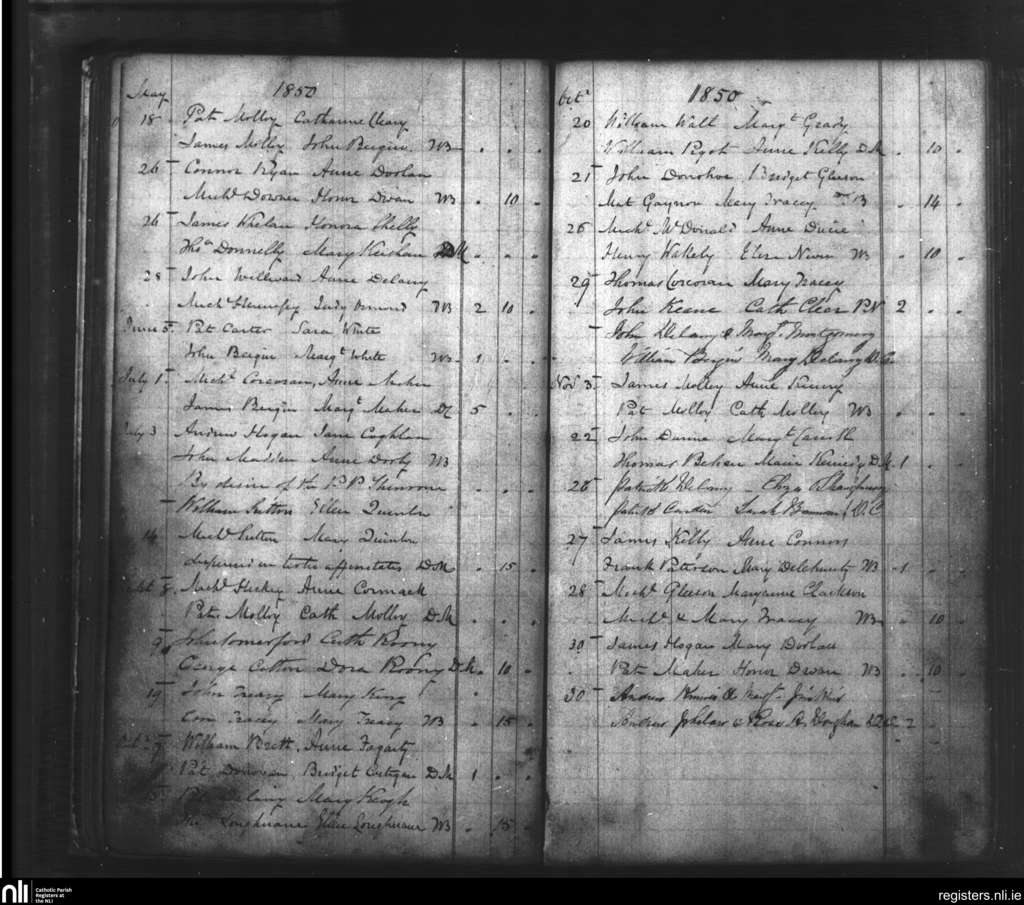 May 1850
18 Pat Molloy Catharine Cleary
James Molloy John Bergin WB
26 Connor Ryan Anne Doolan
Michl Downer Honor Dwan WB 10
26 James Whelan Honora Shelly
Ths Donnelly Mary DM
28 John Anne Delany
Michl Hennessy Judy Ormond WB 2 10
June 5 Pat Carter Sara White
John Bergin Margt White WB 1
July 1 Michl Corcoran Anne Maher
James Bergin Margt Maher DC 5
July 3 Andrew Hogan Jane Coghlan
John Madden Anne Dooly WB
By desire of the P.P. Shinrone
William Sutton Ellen Quinlan
14 Michl Sutton Mary Quinlan
affinitatis DM 15
8 Michl Hickey Anne Cormack
Pat Molloy Cath Molloy DM
9 John Comerford Cath Roony
George Cotton Dora Roony DM 10
19 John Treacy Mary King
Con Tracey Mary Treacy WB 15
7 William Brett Anne Fogarty
Pat Donovan Bridget DM 1
Mary Keogh
Loughnane Ellen Loughnane WB 15
Octr 1850
20 William Walt Margt Grady
William Pigot Anne Kelly DM 10
21 John Donohoe Bridget Gleeson
Mat Gaynor Mary Tracey WB 14
26 Michl McDonald Anne
Henry Wakely Eliza WB 10
29 Thomas Corcoran Mary Tracey
John Keane Cath Clear PN 2
John Delany & Margt Montgomery
William Bergin Mary Delany
Nov 3 James Molloy Anne Kenny
Pat Molloy Cath Molloy WB
22 John Dunne Margt Carroll
Thomas Behan Maria Kennedy DM 1
26 Patrick Delany Eliza
Patrick Carden Sarah DC
27 James Kelly Anne Connors
Frank Paterson Mary WB 1
28 Michl Gleeson Maryanne Clarkson
Michl & Mary Tracey WB 10
30 James Hogan Mary
Pat Maher Honor Dwan WB 10
30 Andrew & Margt Jenkins
Andrew Whelan & Rose A. 2
nli
Catholic Parish
Registers at
the NLI
registers.nli.ie